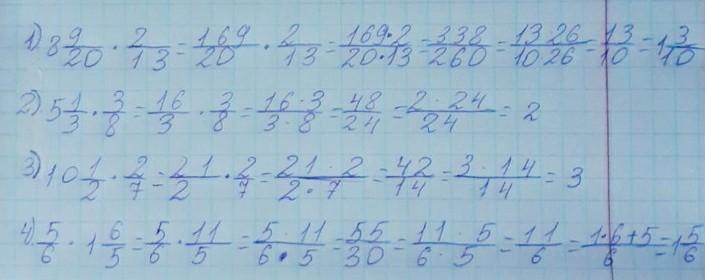 1) 8 9/20 · 2/13 = 169/20 · 2/13 = 169·2/20·13 = 338/260 = 13 26/10 26 = 13/10 = 1 3/10
2) 5 1/3 · 3/8 = 16/3 · 3/8 = 16·3/3·8 = 48/24 = 2·24/24 = 2
3) 10 1/2 · 2/7 = 21/2 · 2/7 = 21·2/2·7 = 42/14 = 3·14/14 = 3
4) 5/6 · 1 6/5 = 5/6 · 11/5 = 5·11/6·5 = 55/30 = 11·5/6·5 = 11/6 = 1·6+5/6 = 1 5/6